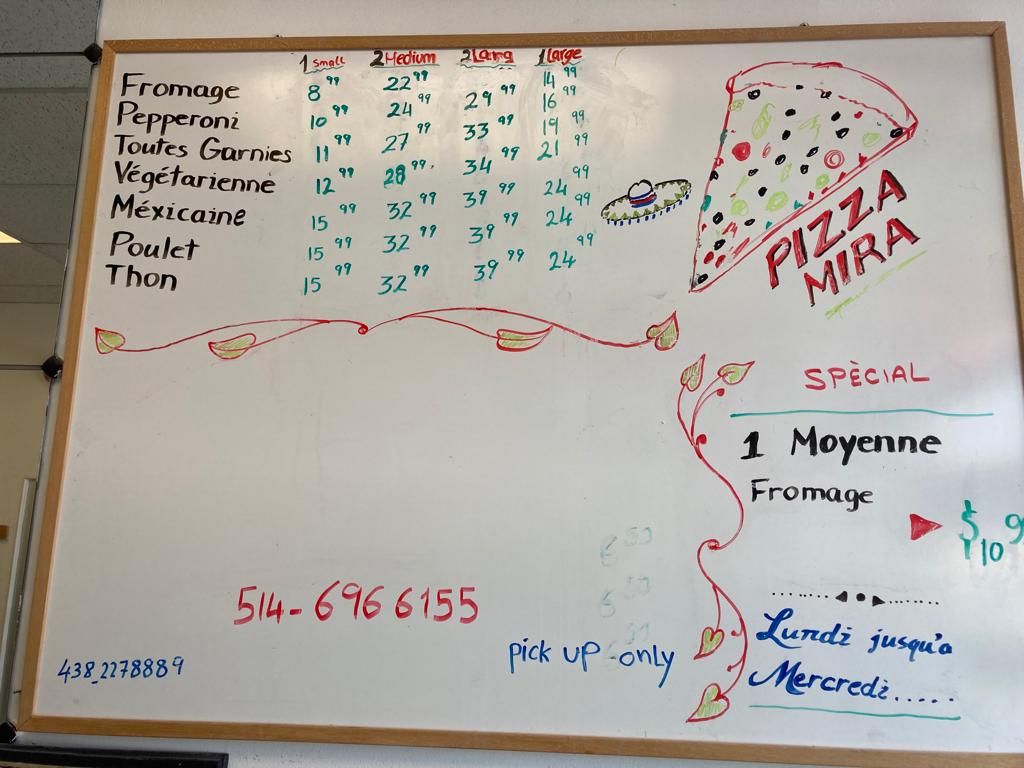 1 Small 2 Medium 2 Larg 1 Large
Fromage 8 99 22 99 29 99 14 99
Pepperoni 10 99 24 99 33 99 16 99
Toutes Garnies 11 99 27 99 34 99 19 99
Végétarienne 12 99 28 99 39 99 21 99
Méxicaine 15 99 32 99 39 99 24 99
Poulet 15 99 32 99 39 99 24 99
Thon 15 99 32 99 24 99
PIZZA
MIRA
SPÈCIAL
1 Moyenne
Fromage
$ 10 9
Lundi jusqu'a
Mercredi.....
514-696 6155
pick up only
438_2278889